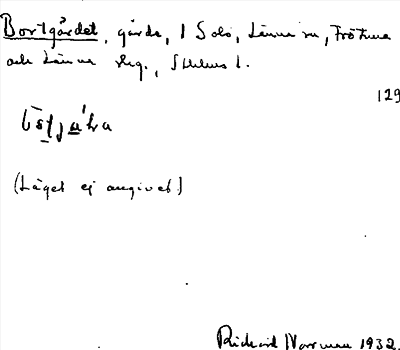 Bortgården, gärde, 1 Solö, Länna sn, Frötuna
och Länna skg., Sthlms l.
129
(Läget ej angivet)
Richard Norrman 1932.